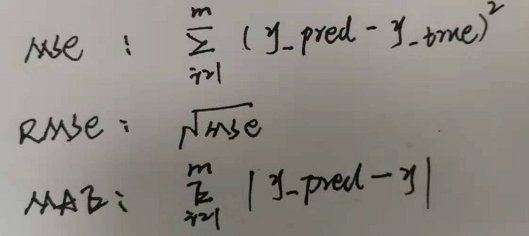 MSE : $\sum_{i=1}^{m} (y\_pred - y\_true)^2$
RMSE : $\sqrt{mse}$
MAE : $\sum_{i=1}^{m} |y\_pred - y|$